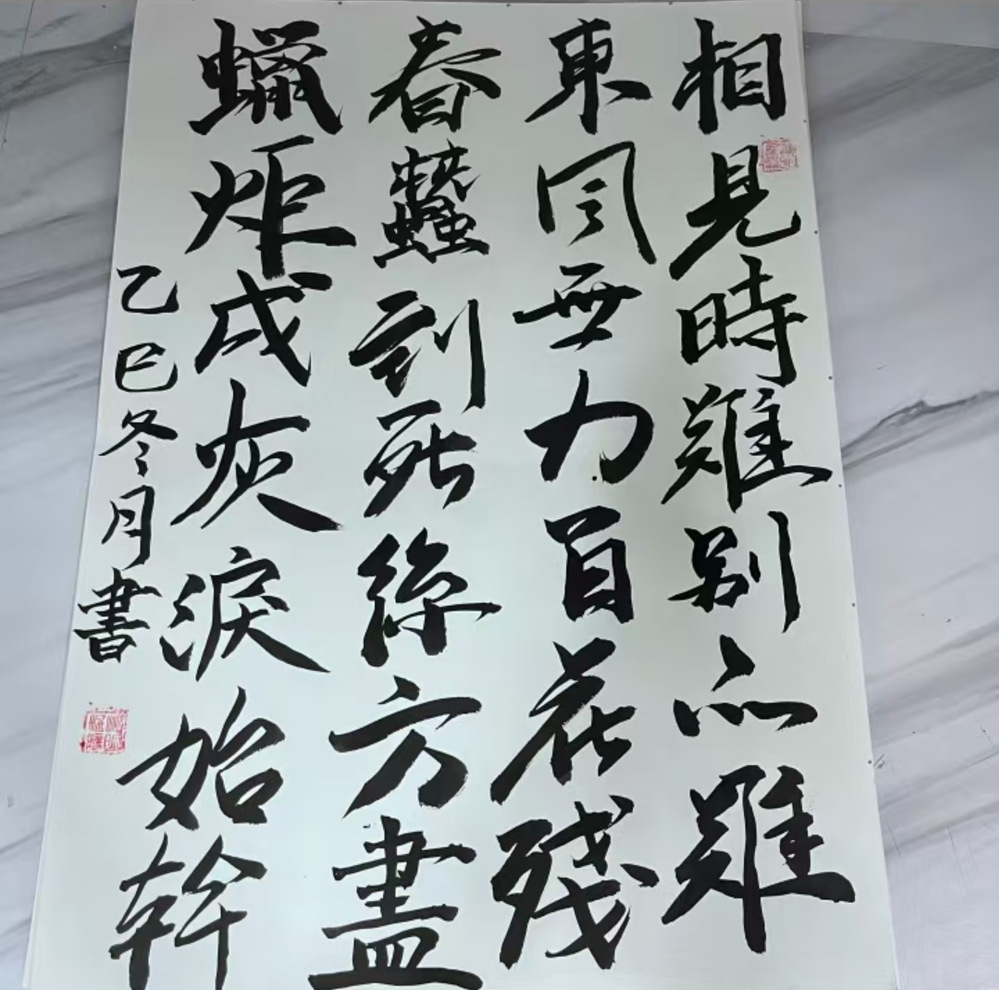 相見時難別亦難
東風無力百花殘
春蠶到死絲方盡
蠟炬成灰淚始幹
乙巳冬月書